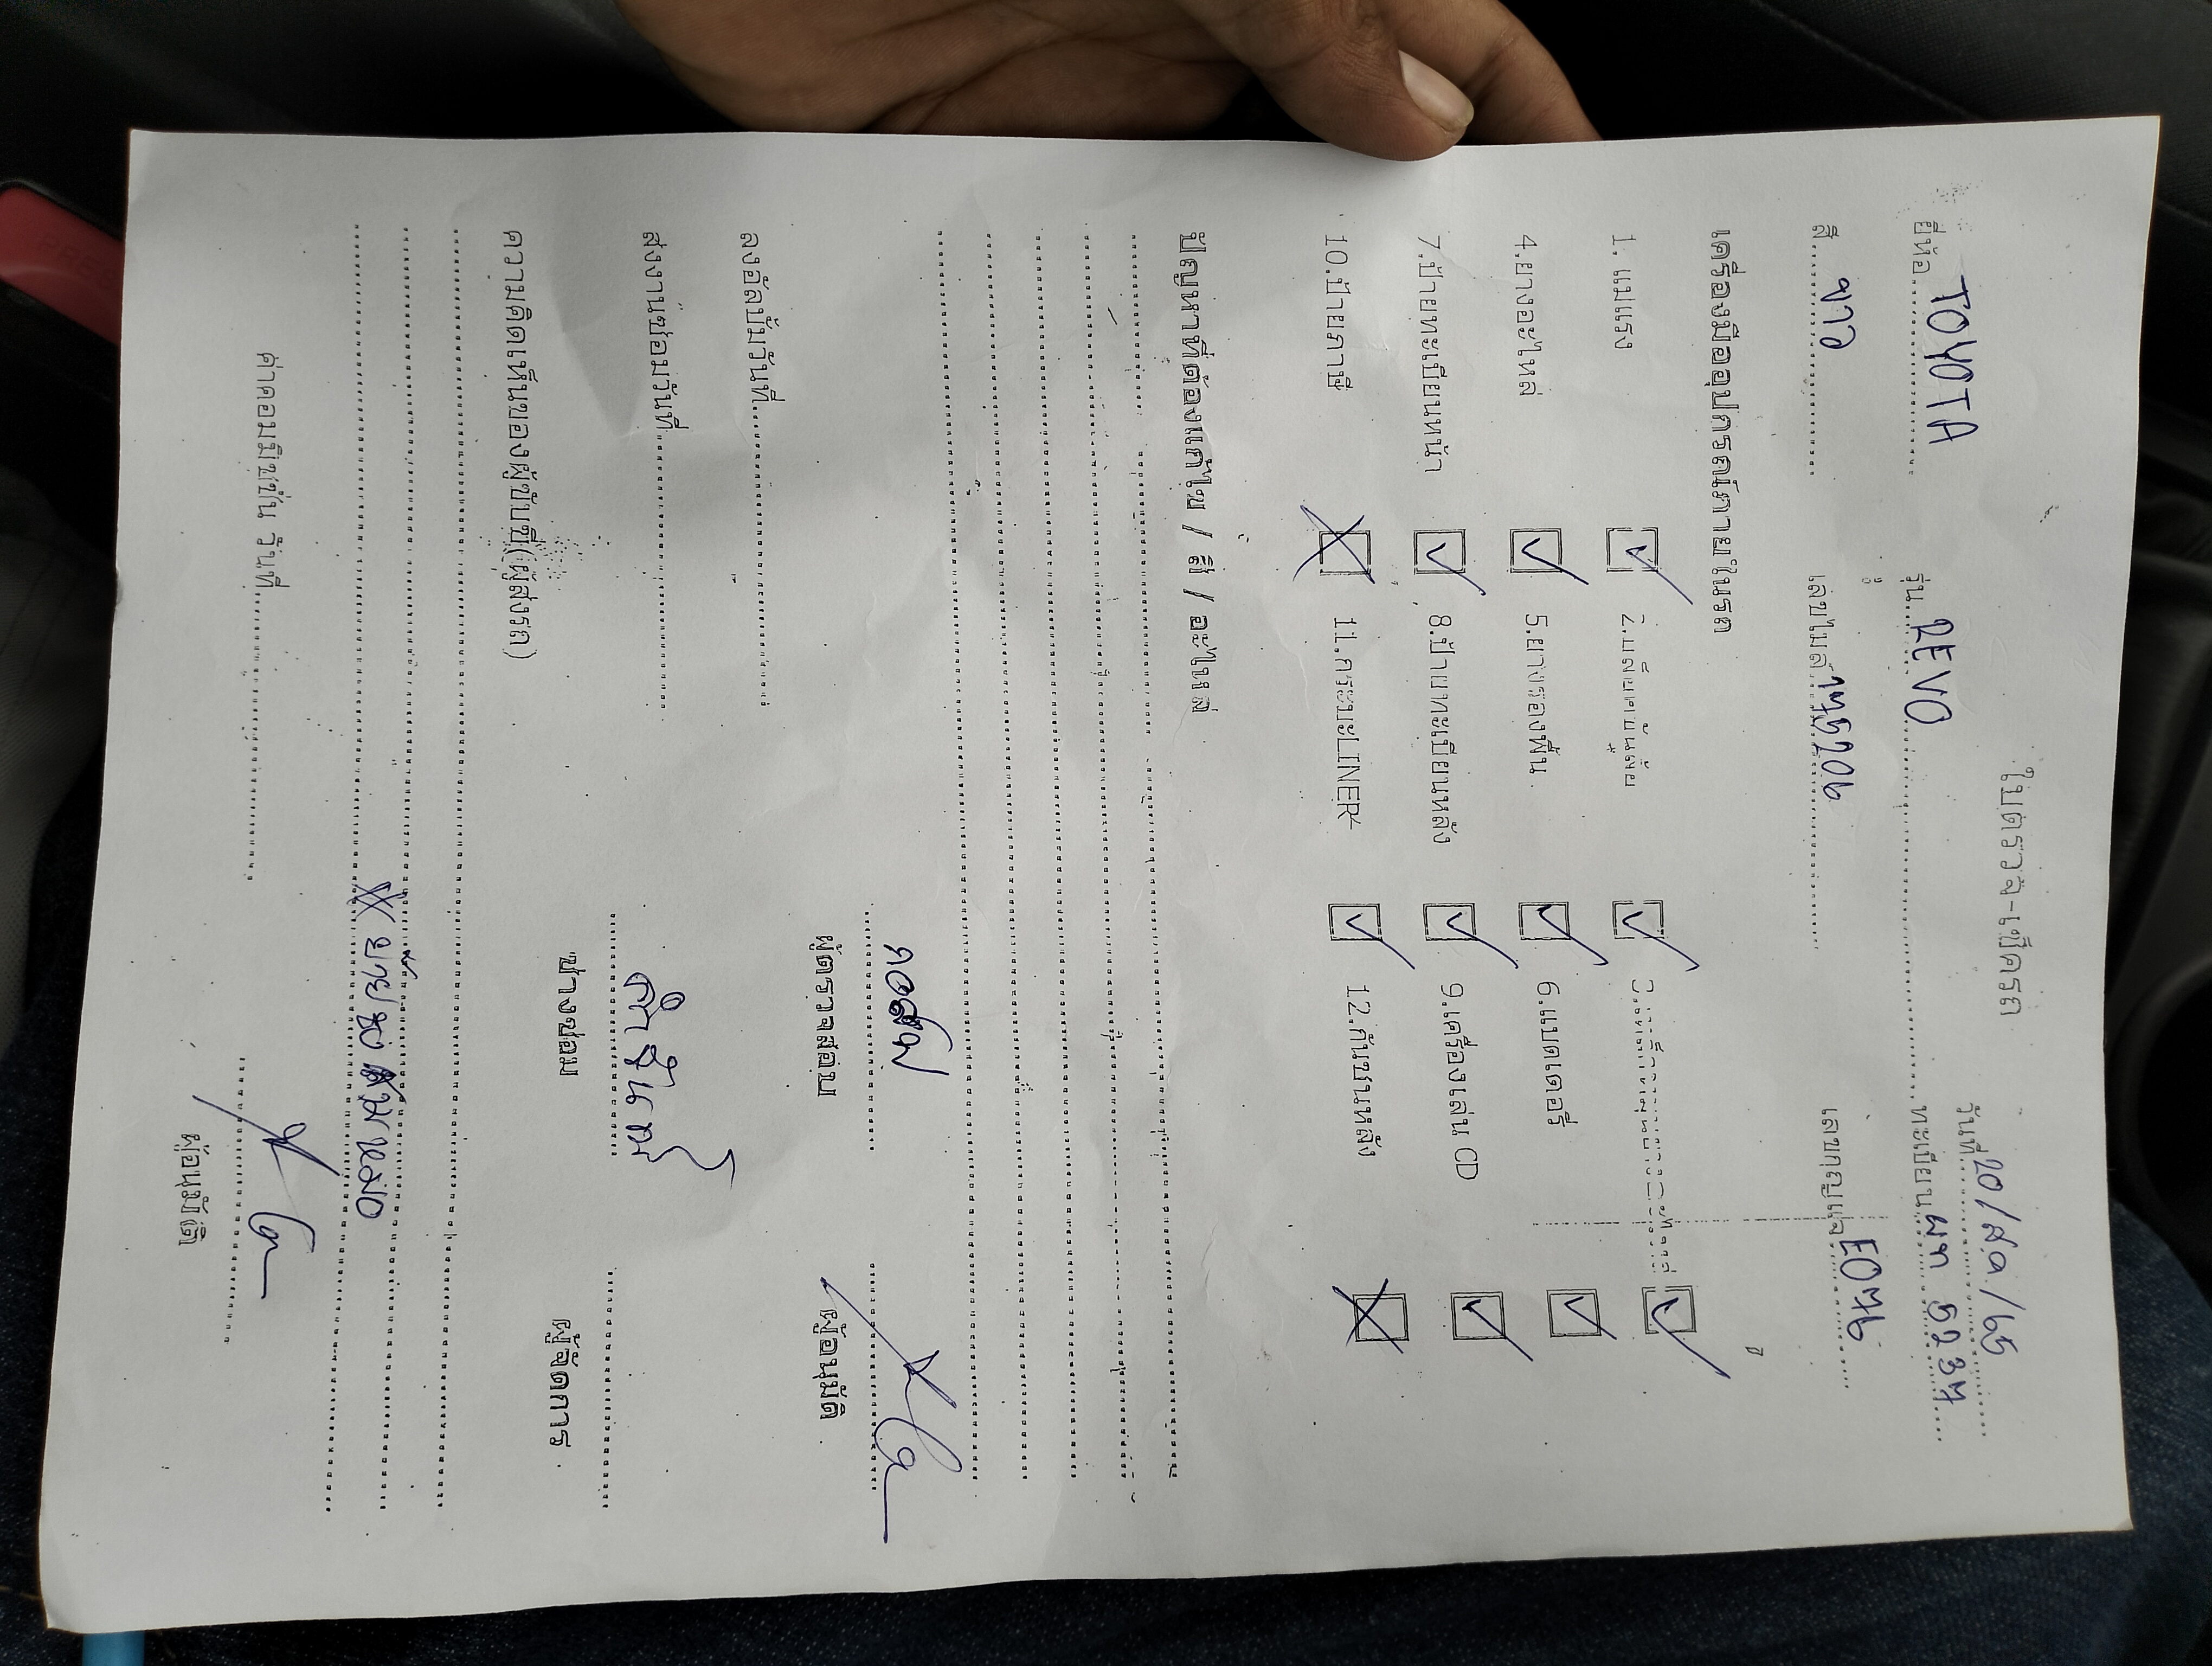 ใบตรวจ-เช็ครถ
วันที่ 20/ส.ค/65
ยี่ห้อ TOYOTA รุ่น REVO ทะเบียน ผก 5237
สี ขาว เลขไมล์ เลขกุญแจ E076
เครื่องมืออุปกรณ์ภายในรถ
1. แม่แรง 2. 3.
4.ยางอะไหล่ 5.ยางรองพื้น 6.แบตเตอรี่
7.ป้ายทะเบียนหน้า 8.ป้ายทะเบียนหลัง 9.เครื่องเล่น CD
10.ป้ายภาษี 11.กระบะLINER 12.กันชนหลัง
ปัญหาที่ต้องแก้ไข / สี / อะไหล่
ผู้ตรวจสอบ ผู้อนุมัติ
ลงอัลบั้มวันที่
ส่งงานซ่อมวันที่
ช่างซ่อม ผู้จัดการ
ความคิดเห็นของผู้ขับขี่(ผู้ส่งรถ)
ค่าคอมมิชชั่น วันที่
ผู้อนุมัติ